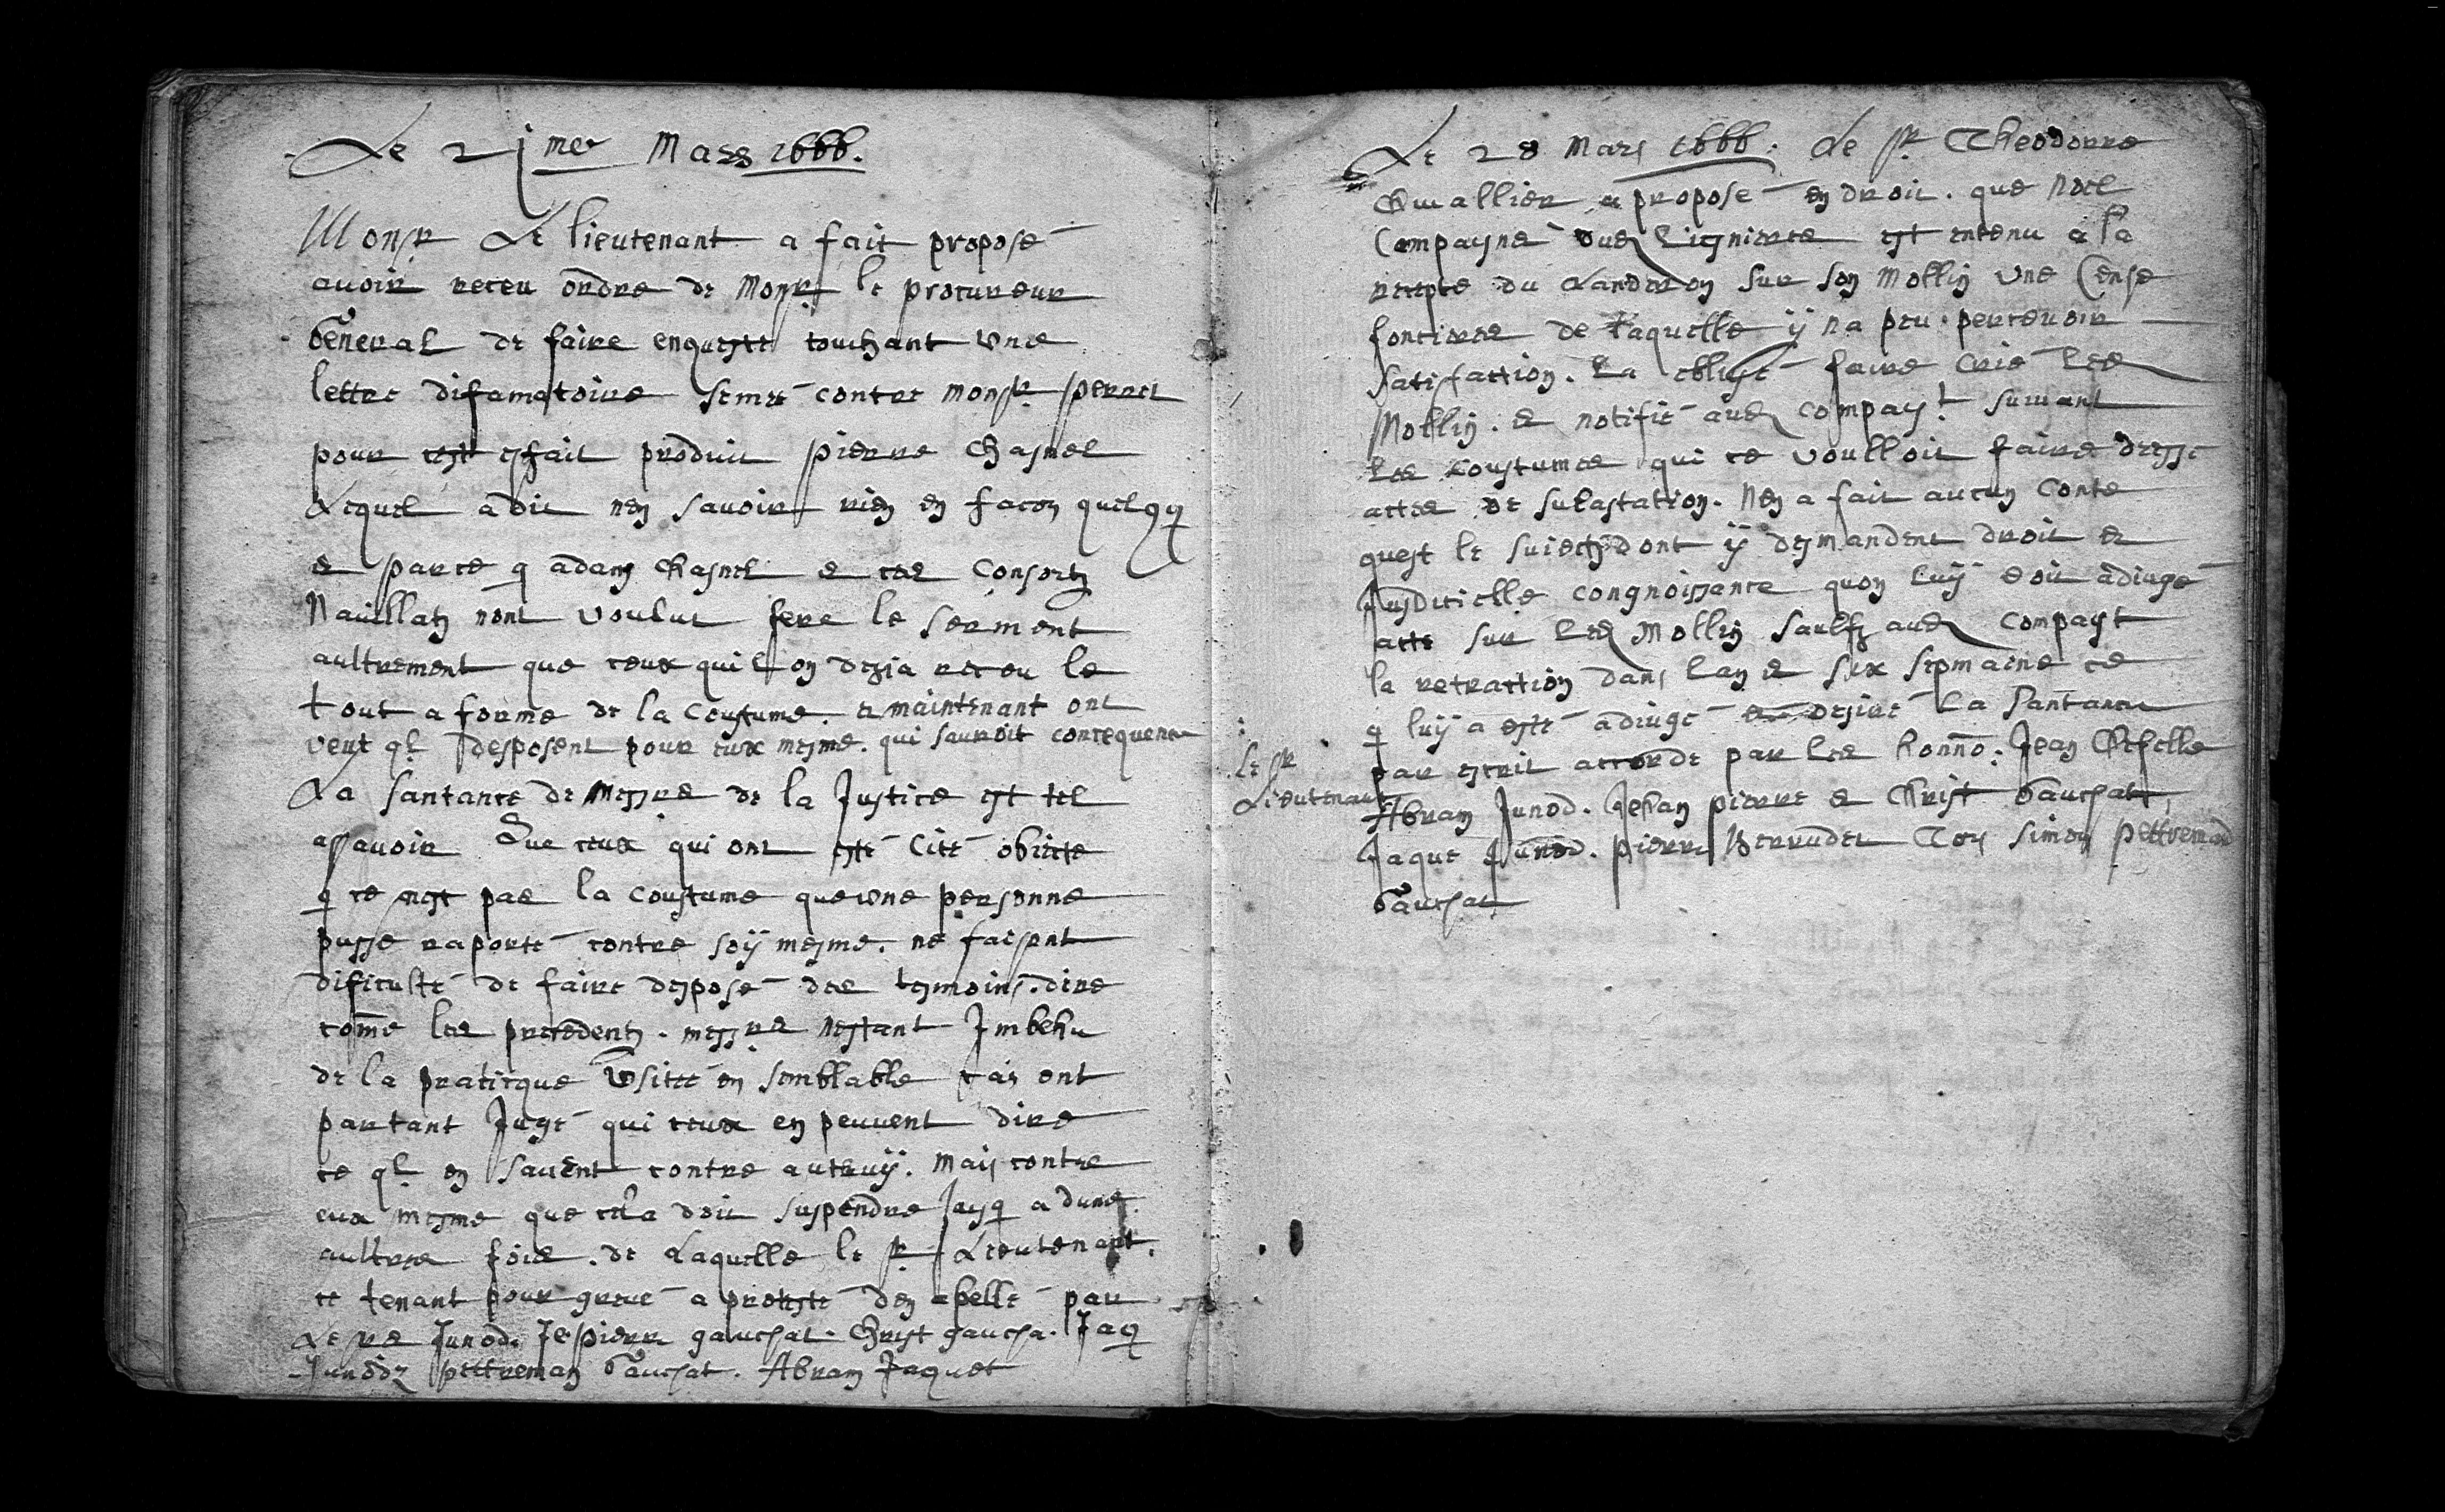 Le 21me Mars 1666.
Monsr Le lieutenant a fait proposé
auoir receu ordre de Monsr le procureur
General de faire enqueste touchant une
lettre difamatoire semé contre monsr perret
pour cest esfait produit pierre Chasnel
Lequel a dit nen sauoir rien en facon quelqq
& parce q adam Chasnel & ces Consortz
Nauillatz nont voulut fere le serment
aultrement que ceux quil on desia receu le
tout a forme de la Coustume. & maintenant ont
veut ql desposent pour eux mesme. qui sauroit concequence
La santance de Messrs de la Justice est tel
assauoir Que ceux qui ont esté cité obiecte
q ce nest pas la coustume que une personne
pusse raporté contre soÿ mesme. ne faisent
dificulté de faire desposé des tesmoins. dire
come les precedentz. messrs nestant Imbehu
de la praticque Usitée en semblable cas ont
partant Jugé qui ceux en peuuent dire
ce ql en sauent contre autruÿ. mais contre
eux mesme que cela doit suspendre Jusq a dune
aultre fois. de Laquelle le sr Lieutenant.
ce tenant pour greué a protesté den apellé par
Les rs Junod. Je pierre gauchat. Christ gaucha. Jaq
Junodz petreman Gauchat. Abram Jaquet
Le 28 Mars 1666. Le sr Theodorre
Cheuallier a proposé en droit. que Noel
Compagne dud Lignieres est entenu a la
recepte du Landeron sur son Mollin une Cense
fonciere de laquelle ÿ na peu perceuoir
satisfaction. La obligé faire crié led
Mollin. & notifié aud compagt suiuant
les coustumes qui ce voulloit faire dressé
actes de subastation. Nen a fait aucun conte
quest le suiect dont ÿ desmandent droit &
Jusdicielle congnoissance quon luÿ doit adiugé
acte sur led Mollin saulfz aud compagt
la retraction dans lan & six sepmaine ce
q luÿ a esté adiugé desiré la santance
par escrit accordé par les honno: Jean Chiffelle
Le sr
Lieutenant
Abram Junod. Jehan pierre & Christ Gauchat,
Jaque Junod. pierre Verrudet Tois simon petreman
Gauchat